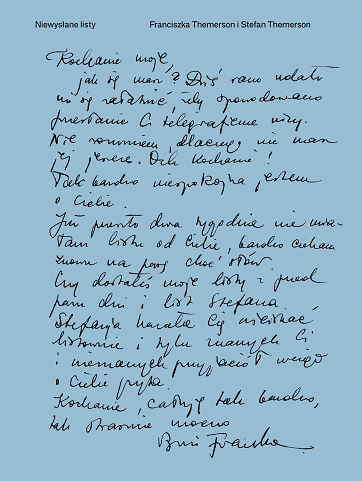 Niewysłane listy
Franciszka Themerson i Stefan Themerson
Kochanie moje,
jak się masz? Dziś rano udało
mi się załatwić, żeby spowodowano
przesłanie Ci telegraficzne wizy.
Nie rozumiem, dlaczego nie masz
jej jeszcze. Och kochanie!
Tak bardzo niespokojna jestem
o Ciebie.
Już prawie dwa tygodnie nie mia-
łam listu od Ciebie, bardzo czekam
znowu na parę choć słów.
Czy dostałeś moje listy z przed
paru dni i list Stefana
Stefania kazała Cię uściskać,
listownie i tylu znanych Ci
i nieznanych przyjaciół wciąż
o Ciebie pyta.
Kochanie, całuję tak bardzo,
tak strasznie mocno
Franciszka